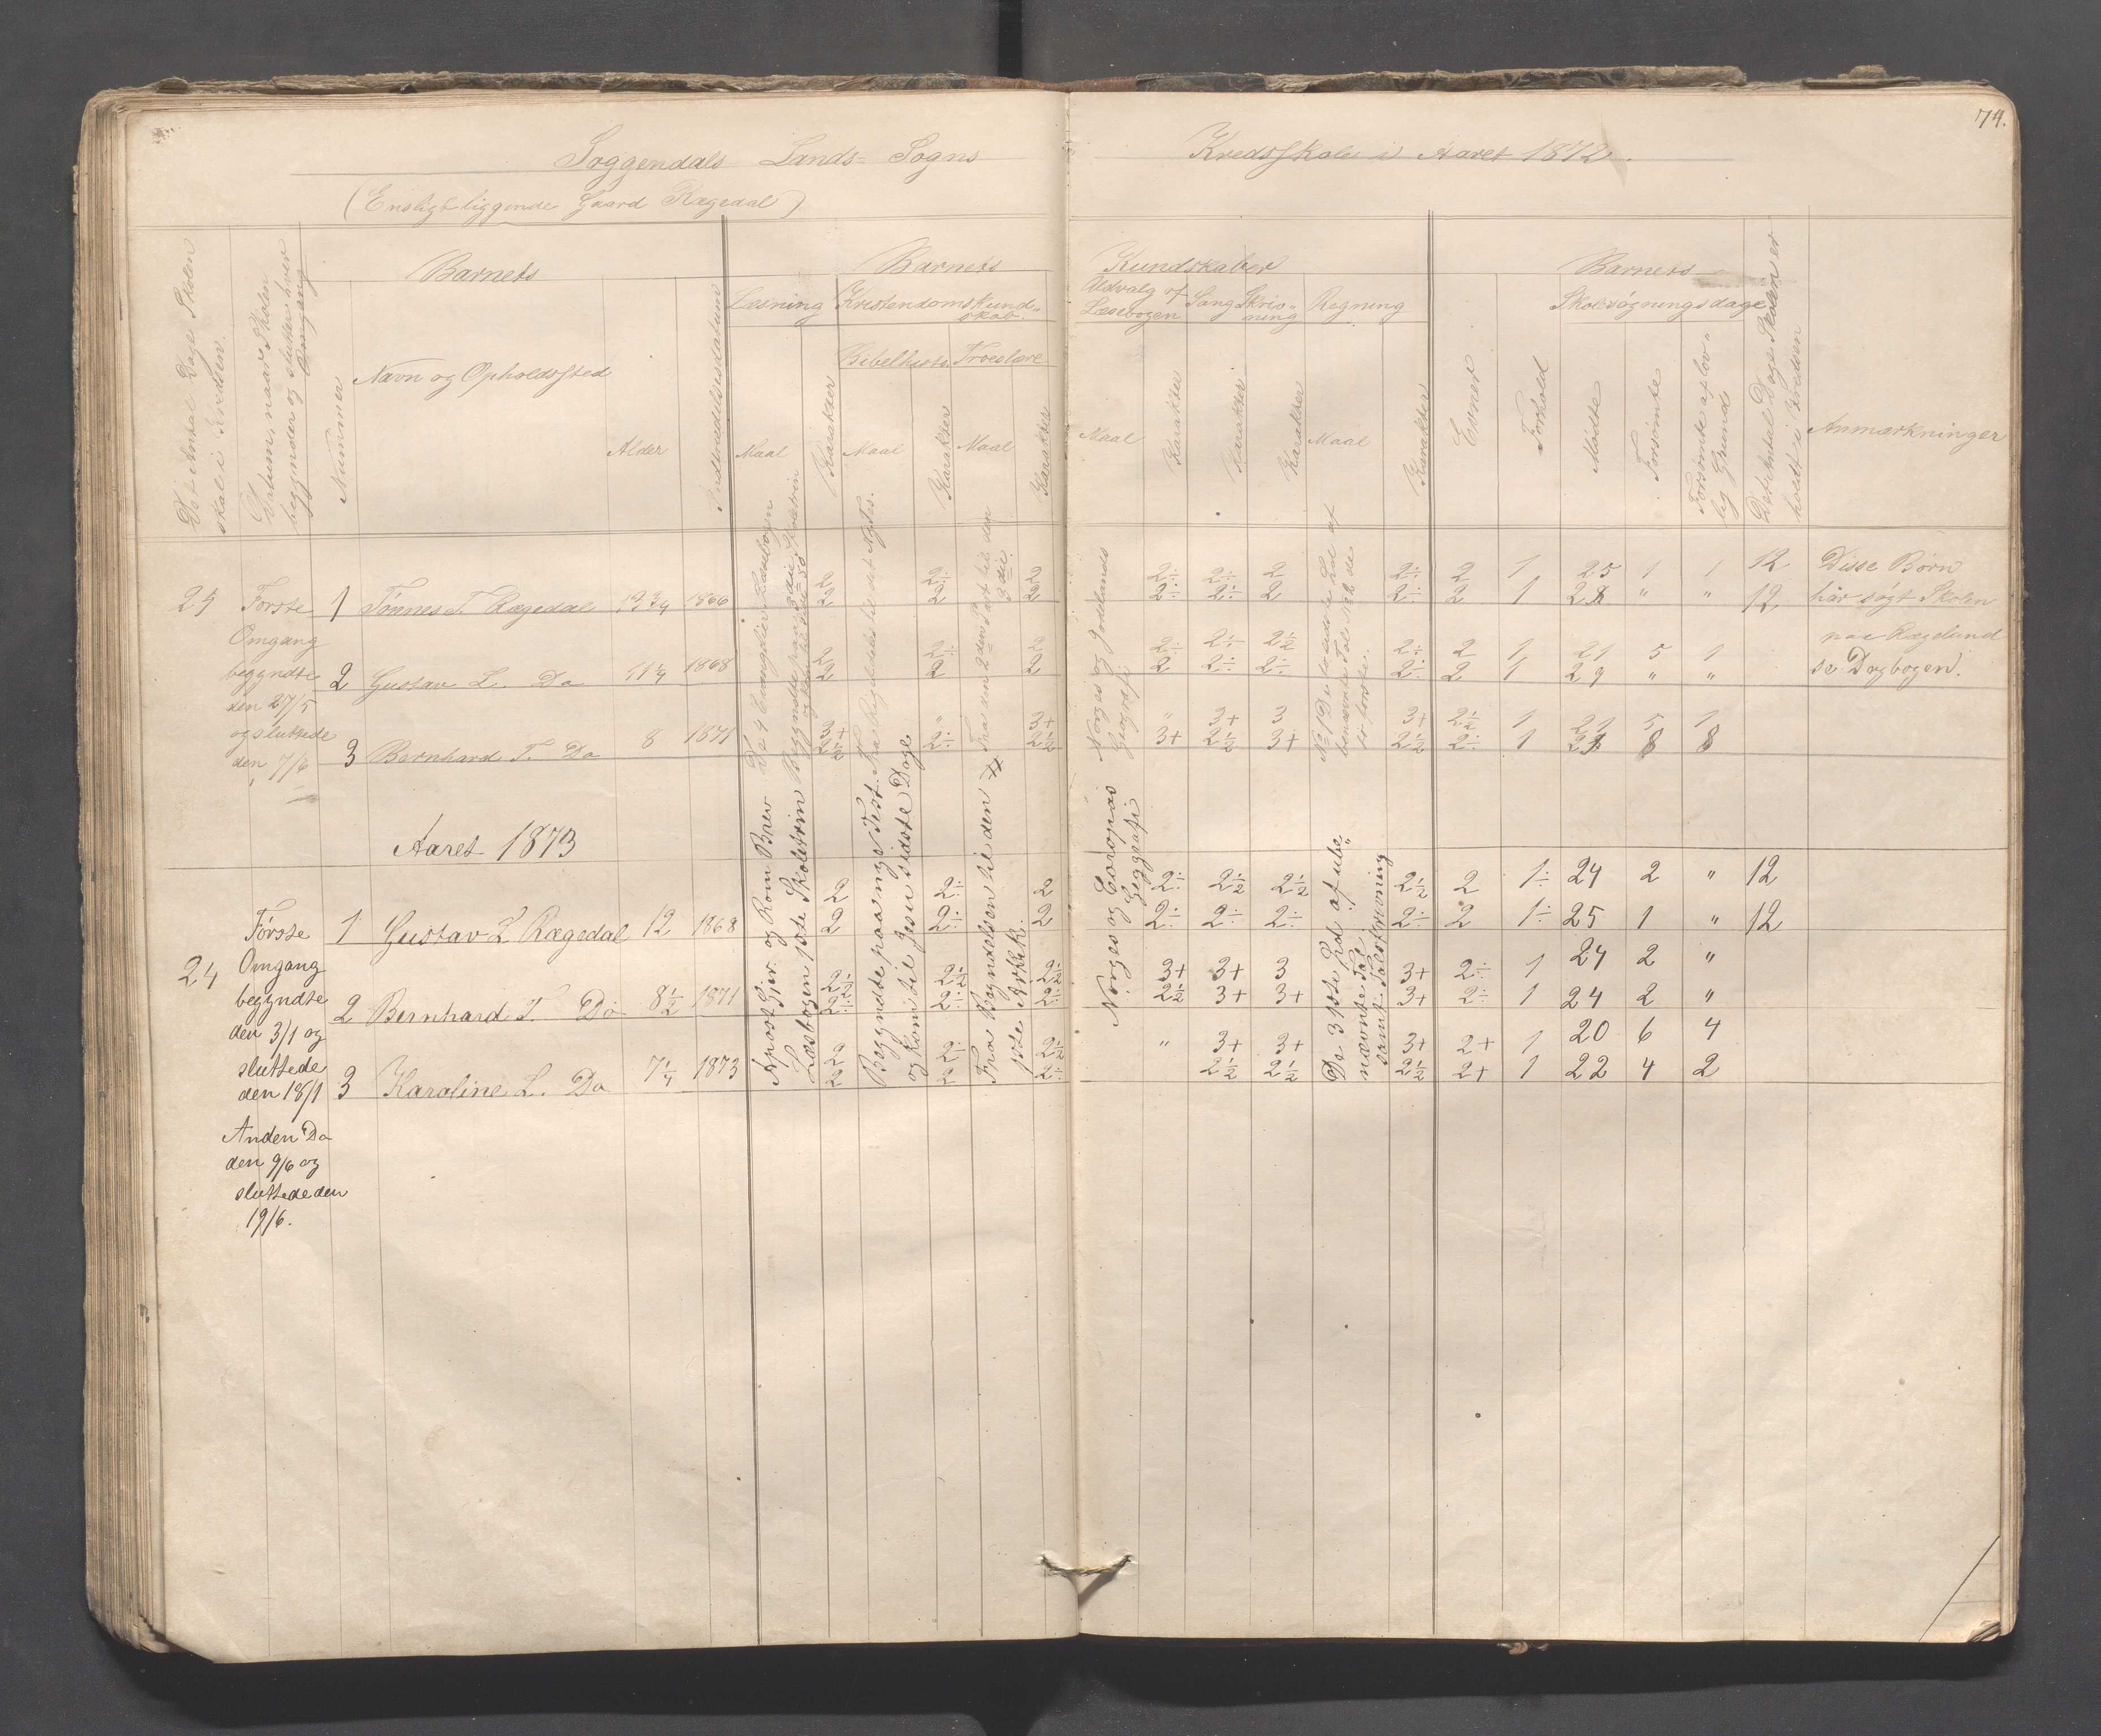 74.
Soggendals Lands= Sogns Kredsskole i Aaret 1872.
(Ensligtliggende Gaard Rægedal)
Det Antal Dage Skolen
skal i Kredsen
Datum, naar Skolen
begynder og slutter hver
Omgang
Barnets
Nummer
Navn og Opholdssted
Alder
Indtrædelsesdatum
Barnets Kundskaber
Læsning
Maal
Karakter
Kristendomskund-
skab.
Bibelhist.
Troeslære
Maal
Karakter
Maal
Karakter
Udvalg af
Læsebogen
Sang
Skriv-
ning
Regning
Maal
Karakter
Karakter
Karakter
Maal
Karakter
Evner
Forhold
Barnets
Skolesøgningsdage
Mødte
Forsømte
Forsømte af lov-
lig Grund
Det Antal Dage Skolen er
holdt i Kredsen
Anmærkninger
Første
Omgang
begyndte
den 27/5
og sluttede
den 7/6
1 Tønnes T. Rægedal 12 3/4 1866
2 Gustav L. Do 11 1/4 1868
3 Bernhard T. Do 8 1871
2 2÷ 2 2÷ 2÷ 2 2÷ 2 1 25 1 1 12
2 2 2 2÷ 2÷ 2 2÷ 2 1 " " 12
2 2÷ 2 2÷ 2÷ 2½ 2÷ 2 1 21 5 1
2 2 2 2 2÷ 2÷ 2÷ 2 1 29 " "
3+ " 3+ " 3+ 3 3+ 2½ 1 5 1
2½ 2÷ 2½ 3+ 2½ 3+ 2½ 2÷ 1 8 8
Disse Børn
har søgt Skolen
paa Rægelund
se Dagbogen.
Norges og
Geografi
Aaret 1873
24
Første
Omgang
begyndte
den 3/1 og
sluttede
den 18/1
Anden Do
den 9/6 og
sluttede den
19/6.
1 Gustav L Rægedal 12 1868
2 Bernhard T. Do 8½ 1871
3 Karoline L. Do 7¼ 1873
Apost Gjer. og Rom Brev
Læsbogen 1ste Skoletrin
Begyndte paa nye Test.
og kom til Jesu sidste Dage
Fra Begyndelsen til den
1ste Artikel.
Norges og Europas
Geografi
De 3 første
nævnte Tal
samt Talskrivning
2 2÷ 2 2÷ 2½ 2½ 2½ 2 1÷ 24 2 " 12
2 2÷ 2 2÷ 2÷ 2÷ 2÷ 2 1÷ 25 1 " 12
2½ 2½ 2½ 3+ 3+ 3 3+ 2÷ 1 24 2 "
2÷ 2÷ 2÷ 2½ 3+ 3+ 3+ 2÷ 1 24 2 "
2 2÷ 2½ " 3+ 3+ 3+ 2+ 1 20 6 4
2 2 2÷ 2½ 2½ 2½ 2+ 1 22 4 2